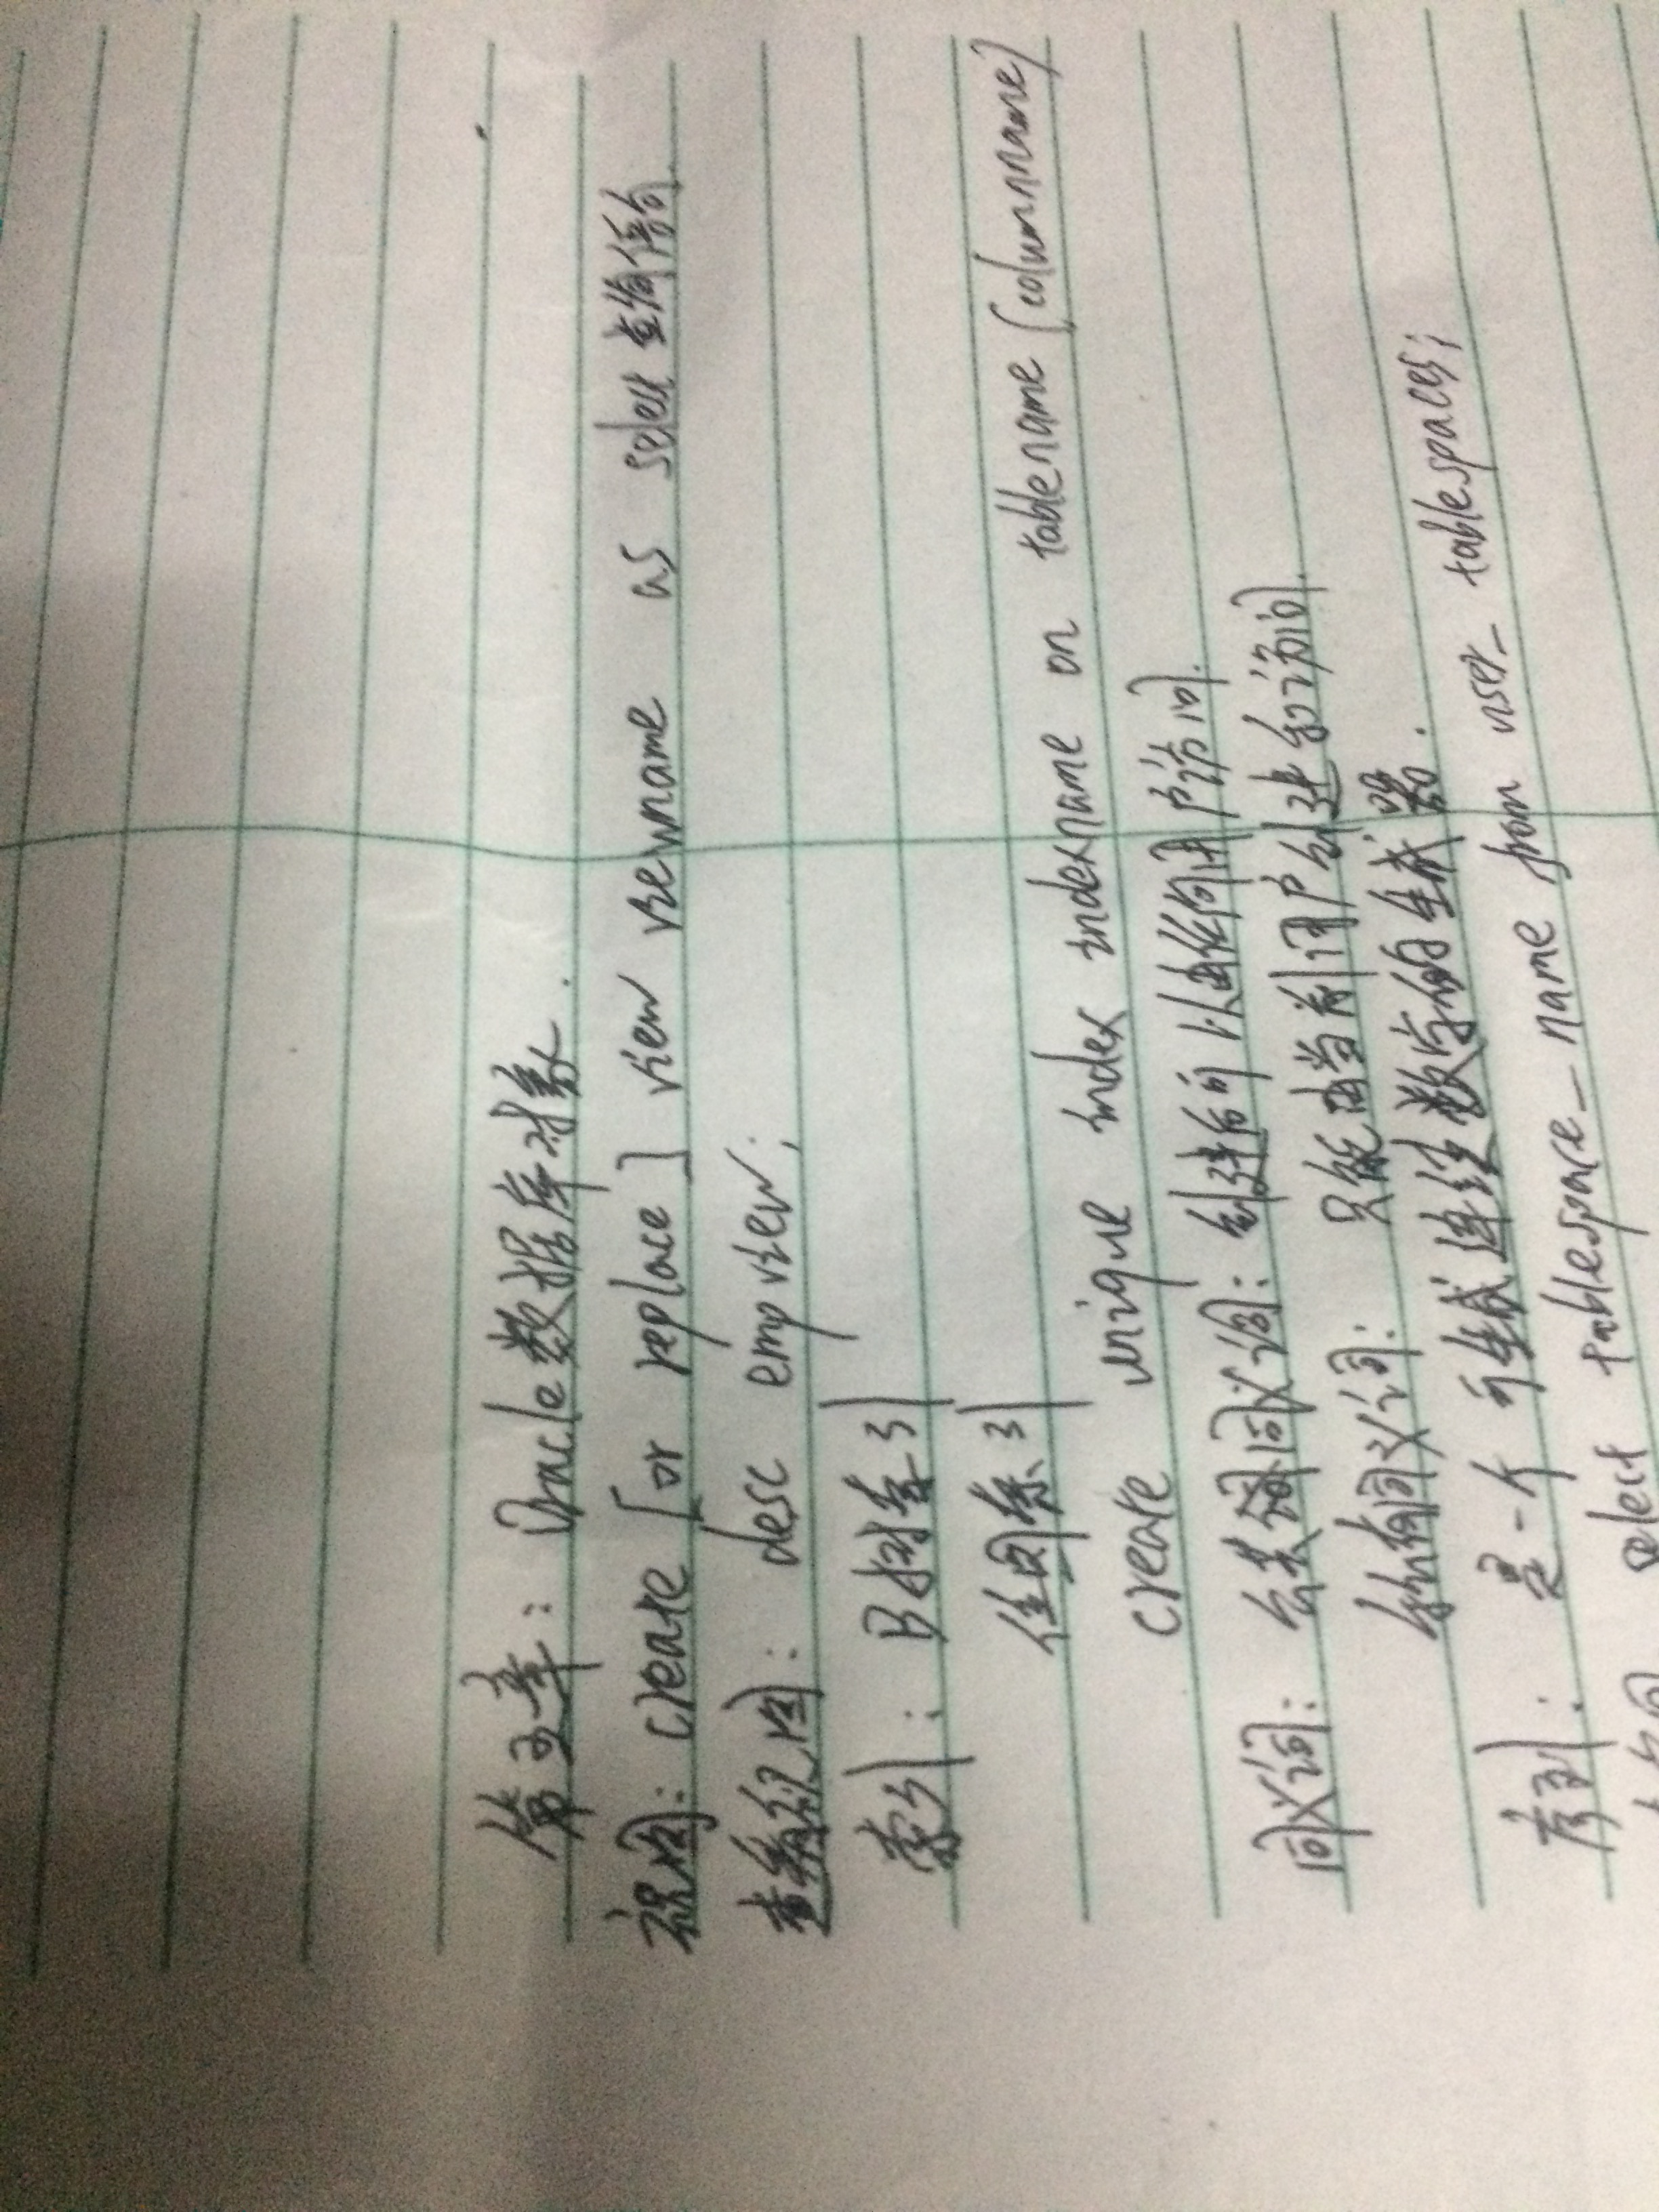 第五章: Oracle数据库对象.
视图: create [or replace] view viewname as select 查询语句.
查看视图: desc empview;
索引: B树索引
位图索引
create unique index indexname on tablename (columnname)
同义词: 公共同义词: 创建后可以由任何用户访问.
私有同义词: 只能由当前用户创建和访问.
序列: 是一个可生成连续数字的生成器.
select tablespace_name from user_tablespaces;